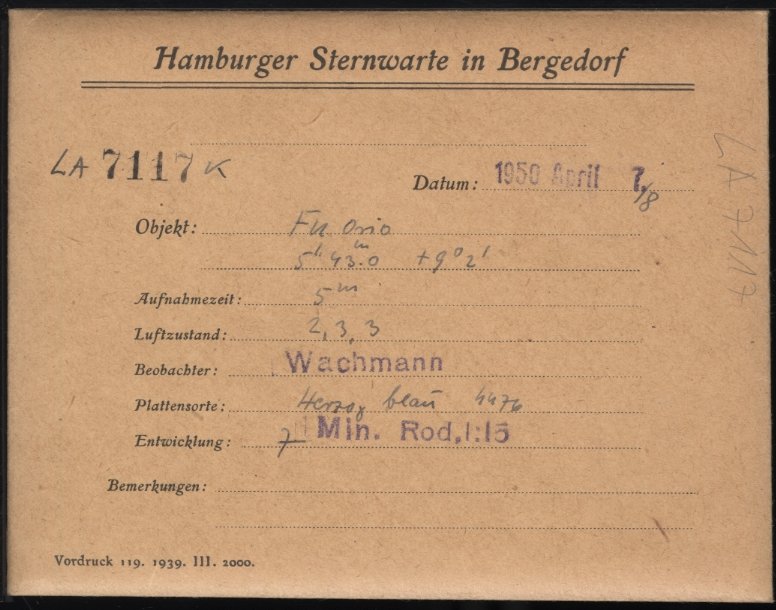 Hamburger Sternwarte in Bergedorf
LA 7117 K
Datum: 1950 April 7./8
Objekt: FU Orio
5h 43m.0 +9° 2'
Aufnahmezeit: 5m
Luftzustand: 2, 3, 3
Beobachter: Wachmann
Plattensorte: Herzog blau 4476
Entwicklung: 7 Min. Rod. 1:15
Bemerkungen:
Vordruck 119. 1939. III. 2000.
LA 7117